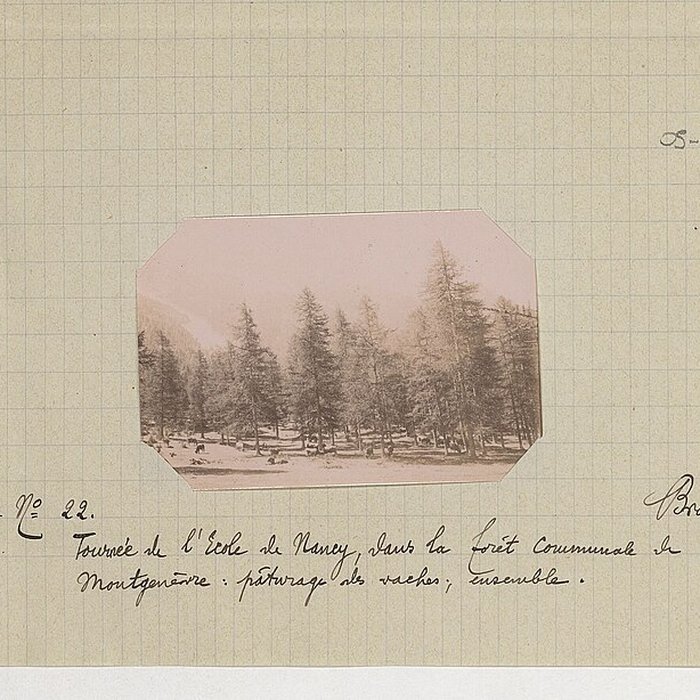 Nº 22.
Tournée de l'Ecole de Nancy, dans la forêt communale de
Montgenèvre : pâturage des vaches ; ensemble.